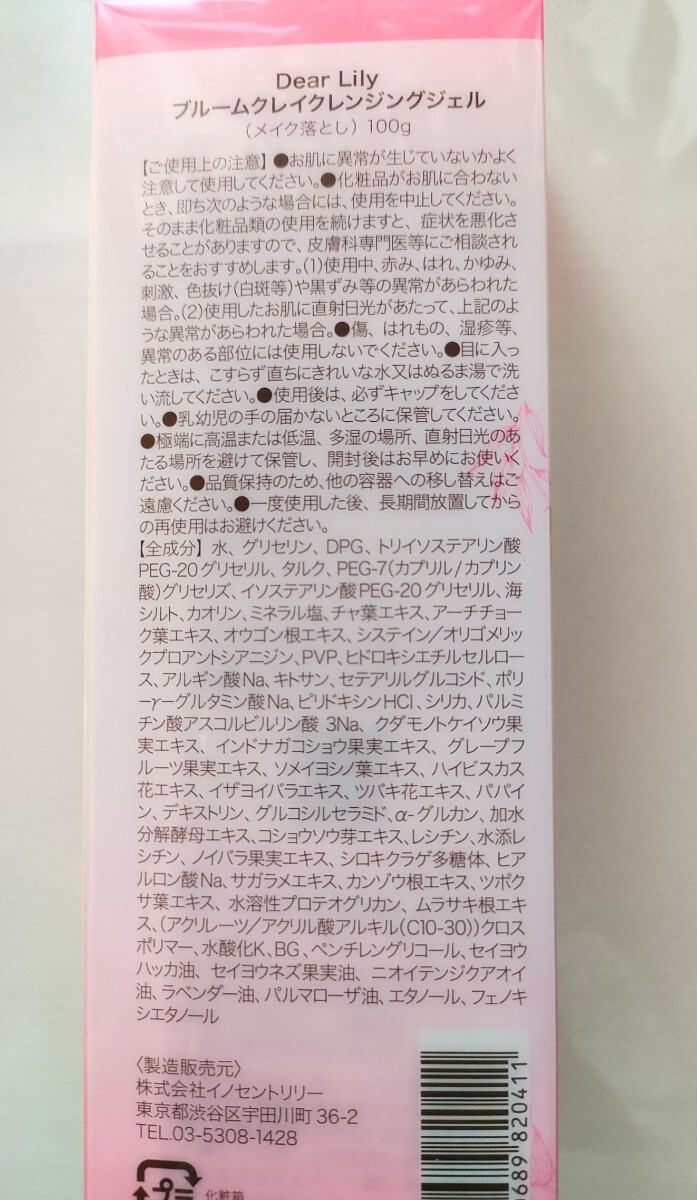 Dear Lily
ブルームクレイクレンジングジェル
(メイク落とし) 100g
【ご使用上の注意】●お肌に異常が生じていないかよく
注意して使用してください。●化粧品がお肌に合わない
とき、即ち次のような場合には、使用を中止してください。
そのまま化粧品類の使用を続けますと、症状を悪化さ
せることがありますので、皮膚科専門医等にご相談され
ることをおすすめします。(1)使用中、赤み、はれ、かゆみ、
刺激、色抜け(白斑等)や黒ずみ等の異常があらわれた
場合。(2)使用したお肌に直射日光があたって、上記のよ
うな異常があらわれた場合。●傷、はれもの、湿疹等、
異常のある部位には使用しないでください。●目に入っ
たときは、こすらず直ちにきれいな水又はぬるま湯で洗
い流してください。●使用後は、必ずキャップをしてくださ
い。●乳幼児の手の届かないところに保管してください。
●極端に高温または低温、多湿の場所、直射日光のあ
たる場所を避けて保管し、開封後はお早めにお使いく
ださい。●品質保持のため、他の容器への移し替えはご
遠慮ください。●一度使用した後、長期間放置してから
の再使用はお避けください。
【全成分】水、グリセリン、DPG、トリイソステアリン酸
PEG-20グリセリル、タルク、PEG-7(カプリル/カプリン
酸)グリセリズ、イソステアリン酸PEG-20グリセリル、海
シルト、カオリン、ミネラル塩、チャ葉エキス、アーチチョー
ク葉エキス、オウゴン根エキス、システイン/オリゴメリッ
クプロアントシアニジン、PVP、ヒドロキシエチルセルロー
ス、アルギン酸Na、キトサン、セテアリルグルコシド、ポリ
-γ-グルタミン酸Na、ピリドキシンHCl、シリカ、パルミ
チン酸アスコルビルリン酸 3Na、クダモノトケイソウ果
実エキス、インドナガコショウ果実エキス、グレープフ
ルーツ果実エキス、ソメイヨシノ葉エキス、ハイビスカス
花エキス、イザヨイバラエキス、ツバキ花エキス、パパイ
ン、デキストリン、グルコシルセラミド、α-グルカン、加水
分解酵母エキス、コショウソウ芽エキス、レシチン、水添レ
シチン、ノイバラ果実エキス、シロキクラゲ多糖体、ヒア
ルロン酸Na、サガラメエキス、カンゾウ根エキス、ツボク
サ葉エキス、水溶性プロテオグリカン、ムラサキ根エキ
ス、(アクリレーツ/アクリル酸アルキル(C10-30))クロス
ポリマー、水酸化K、BG、ペンチレングリコール、セイヨウ
ハッカ油、セイヨウネズ果実油、ニオイテンジクアオイ
油、ラベンダー油、パルマローザ油、エタノール、フェノキ
シエタノール
〈製造販売元〉
株式会社イノセントリリー
東京都渋谷区宇田川町 36-2
TEL.03-5308-1428
プラ
化粧箱
689 820411